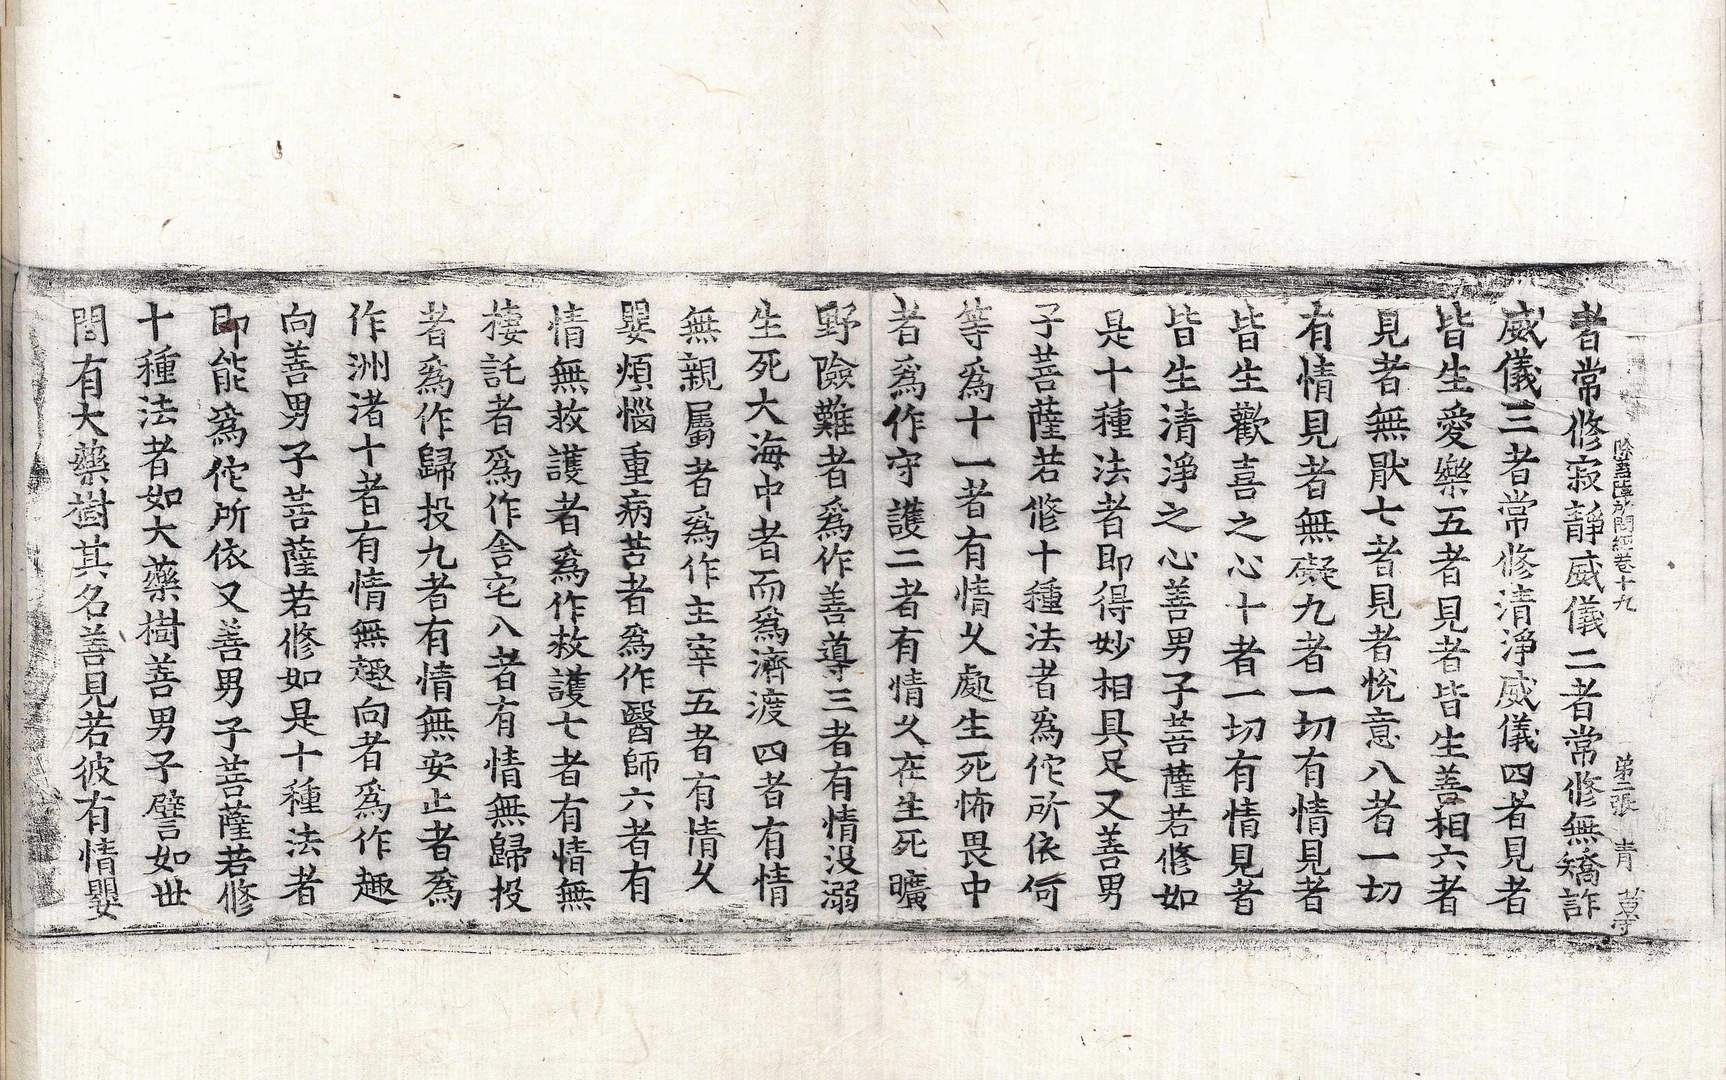 除蓋障所問經卷十九　第二張　青
者常修寂靜威儀二者常修無矯詐
威儀三者常修清淨威儀四者見者
皆生愛樂五者見者皆生善相六者
見者無猒七者見者悅意八者一切
有情見者無礙九者一切有情見者
皆生歡喜之心十者一切有情見者
皆生清淨之心善男子菩薩若修如
是十種法者即得妙相具足又善男
子菩薩若修十種法者爲佗所依何
等爲十一者有情乆處生死怖畏中
者爲作守護二者有情乆在生死曠
野險難者爲作善導三者有情没溺
生死大海中者而爲濟渡四者有情
無親屬者爲作主宰五者有情乆
嬰煩惱重病苦者爲作醫師六者有
情無救護者爲作救護七者有情無
棲託者爲作舍宅八者有情無歸投
者爲作歸投九者有情無安止者爲
作洲渚十者有情無趣向者爲作趣
向善男子菩薩若修如是十種法者
即能爲佗所依又善男子菩薩若修
十種法者如大藥樹善男子譬如世
間有大藥樹其名善見若彼有情嬰